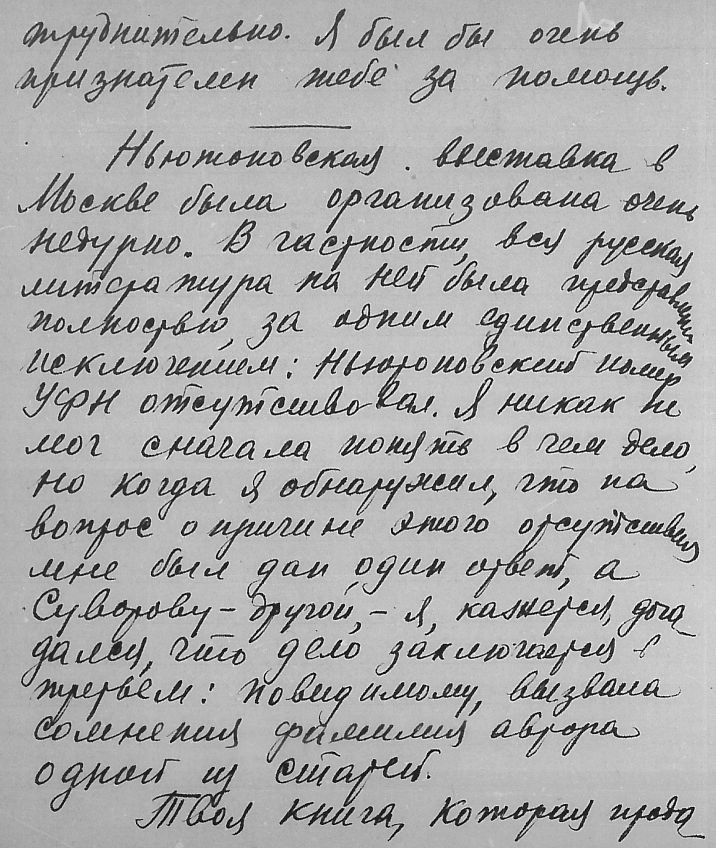 труднительно. Я был бы очень
признателен тебе за помощь.
Ньютоновская выставка в
Москве была организована очень
недурно. В частности, вся русская
литература на ней была представлена
полностью, за одним единственным
исключением: Ньютоновский номер
УФН отсутствовал. Я никак не
мог сначала понять в чем дело,
но когда я обнаружил, что на
вопрос о причине этого отсутствия
мне был дан один ответ, а
Суворову – другой, – я, кажется, дога
дался, что дело заключается в
третьем: повидимому, вызвала
сомнения фамилия автора
одной из статей.
Твоя книга, которая прода